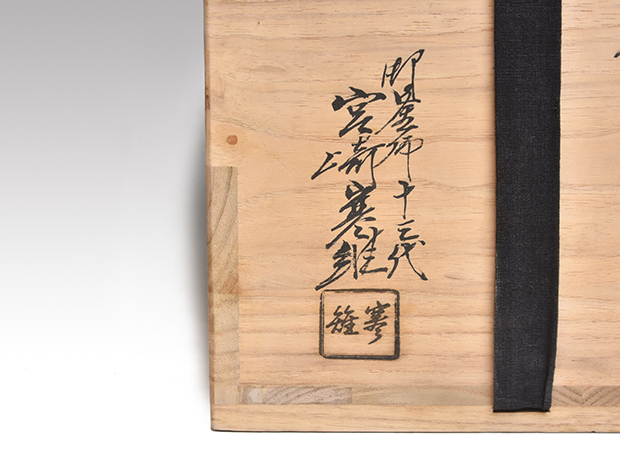 御釜師十三代
宮﨑寒雉
寒雉